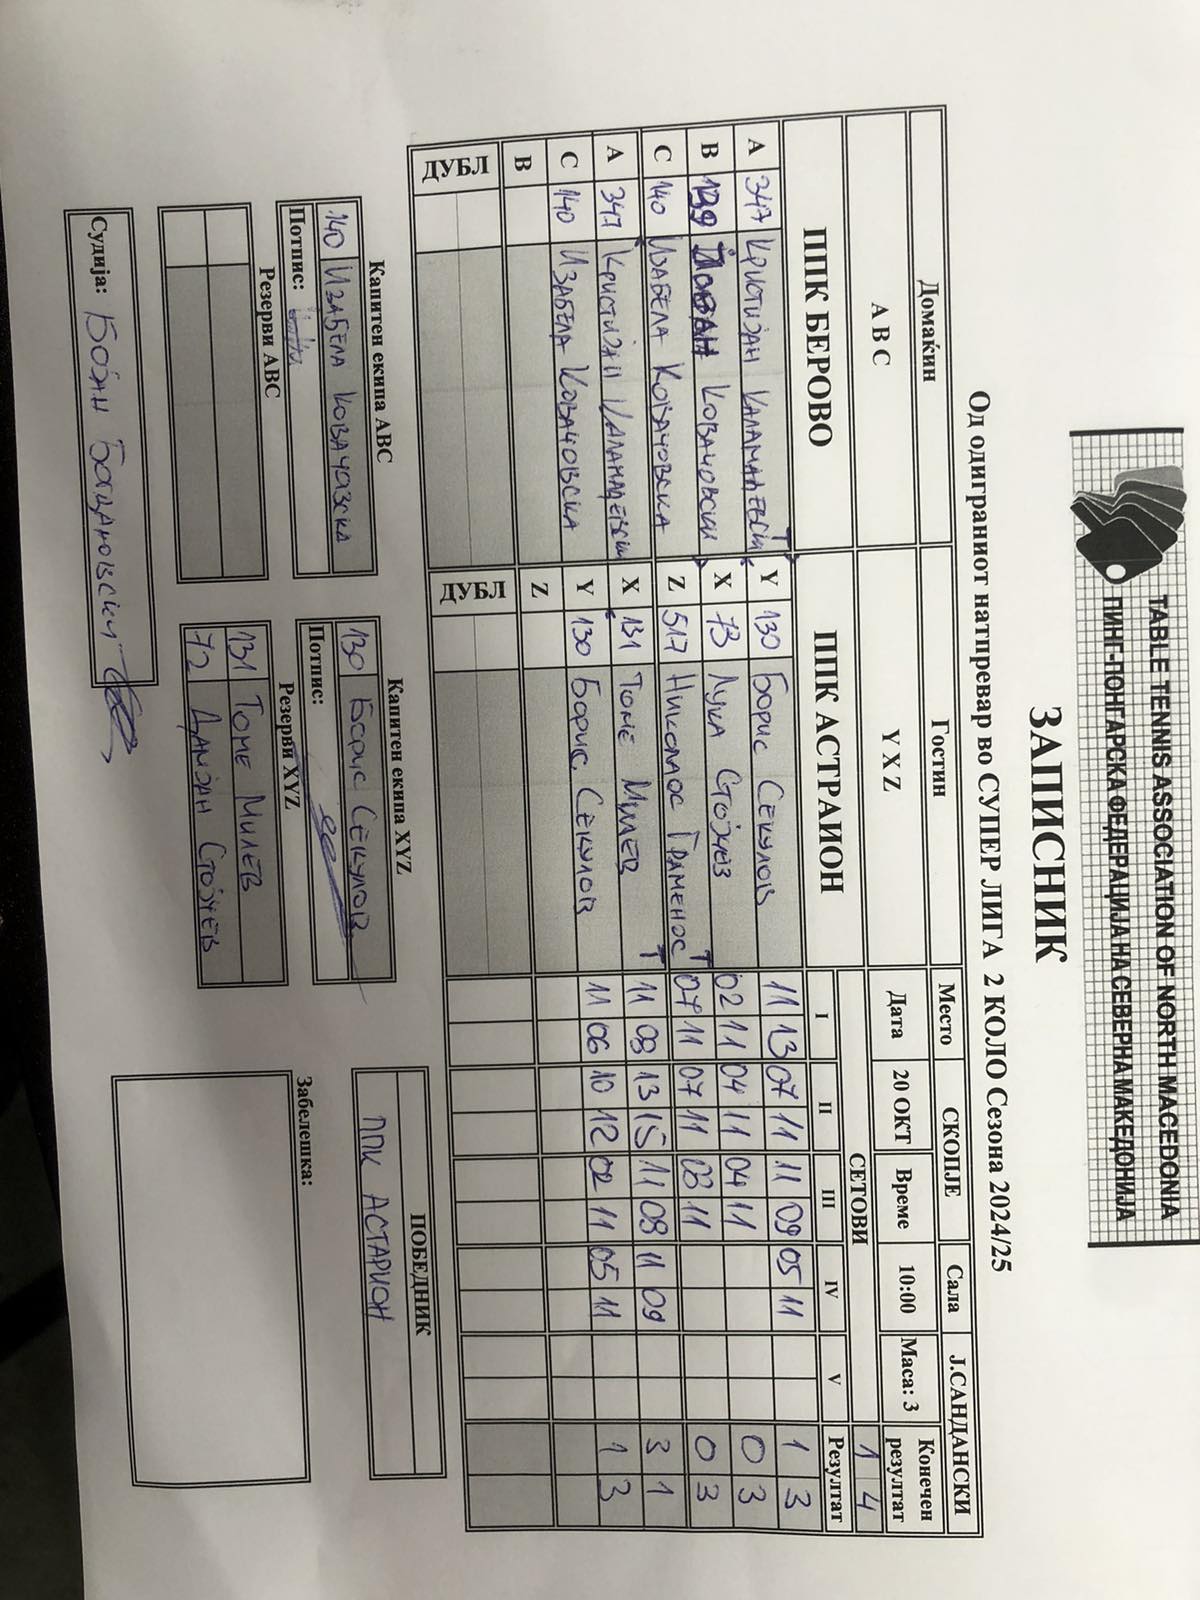 TABLE TENNIS ASSOCIATION OF NORTH MACEDONIA
ПИНГ-ПОНГАРСКА ФЕДЕРАЦИЈА НА СЕВЕРНА МАКЕДОНИЈА
ЗАПИСНИК
Од одиграниот натпревар во СУПЕР ЛИГА 2 КОЛО Сезона 2024/25
Домаќин Гостин Место СКОПЈЕ Сала Ј.САНДАНСКИ
A B C Y X Z Дата 20 ОКТ Време 10:00 Маса: 3 Конечен резултат
ППК БЕРОВО ППК АСТРАИОН СЕТОВИ 1 4
I II III IV V Резултат
A 347 Кристијан Каламадевски Т Y 130 Борис Секулов 11 13 07 11 11 09 05 11 1 3
B 139 Јован Ковачовски X 73 Лука Стојчев 02 11 04 11 04 11 0 3
C 140 Изабела Ковачовска Z 517 Николаос Граменос Т 07 11 07 11 08 11 0 3
A 347 Кристијан Каламадевски X 131 Томе Милев Т 11 08 13 15 11 08 11 09 3 1
C 140 Изабела Ковачовска Y 130 Борис Секулов 11 06 10 12 02 11 05 11 1 3
B Z
ДУБЛ ДУБЛ
Капитен екипа ABC Капитен екипа XYZ ПОБЕДНИК
140 Изабела Ковачовска 130 Борис Секулов ППК АСТАРИОН
Потпис: Потпис:
Резерви ABC Резерви XYZ Забелешка:
131 Томе Милев
72 Дамјан Стојчев
Судија: Бојан Богдановски